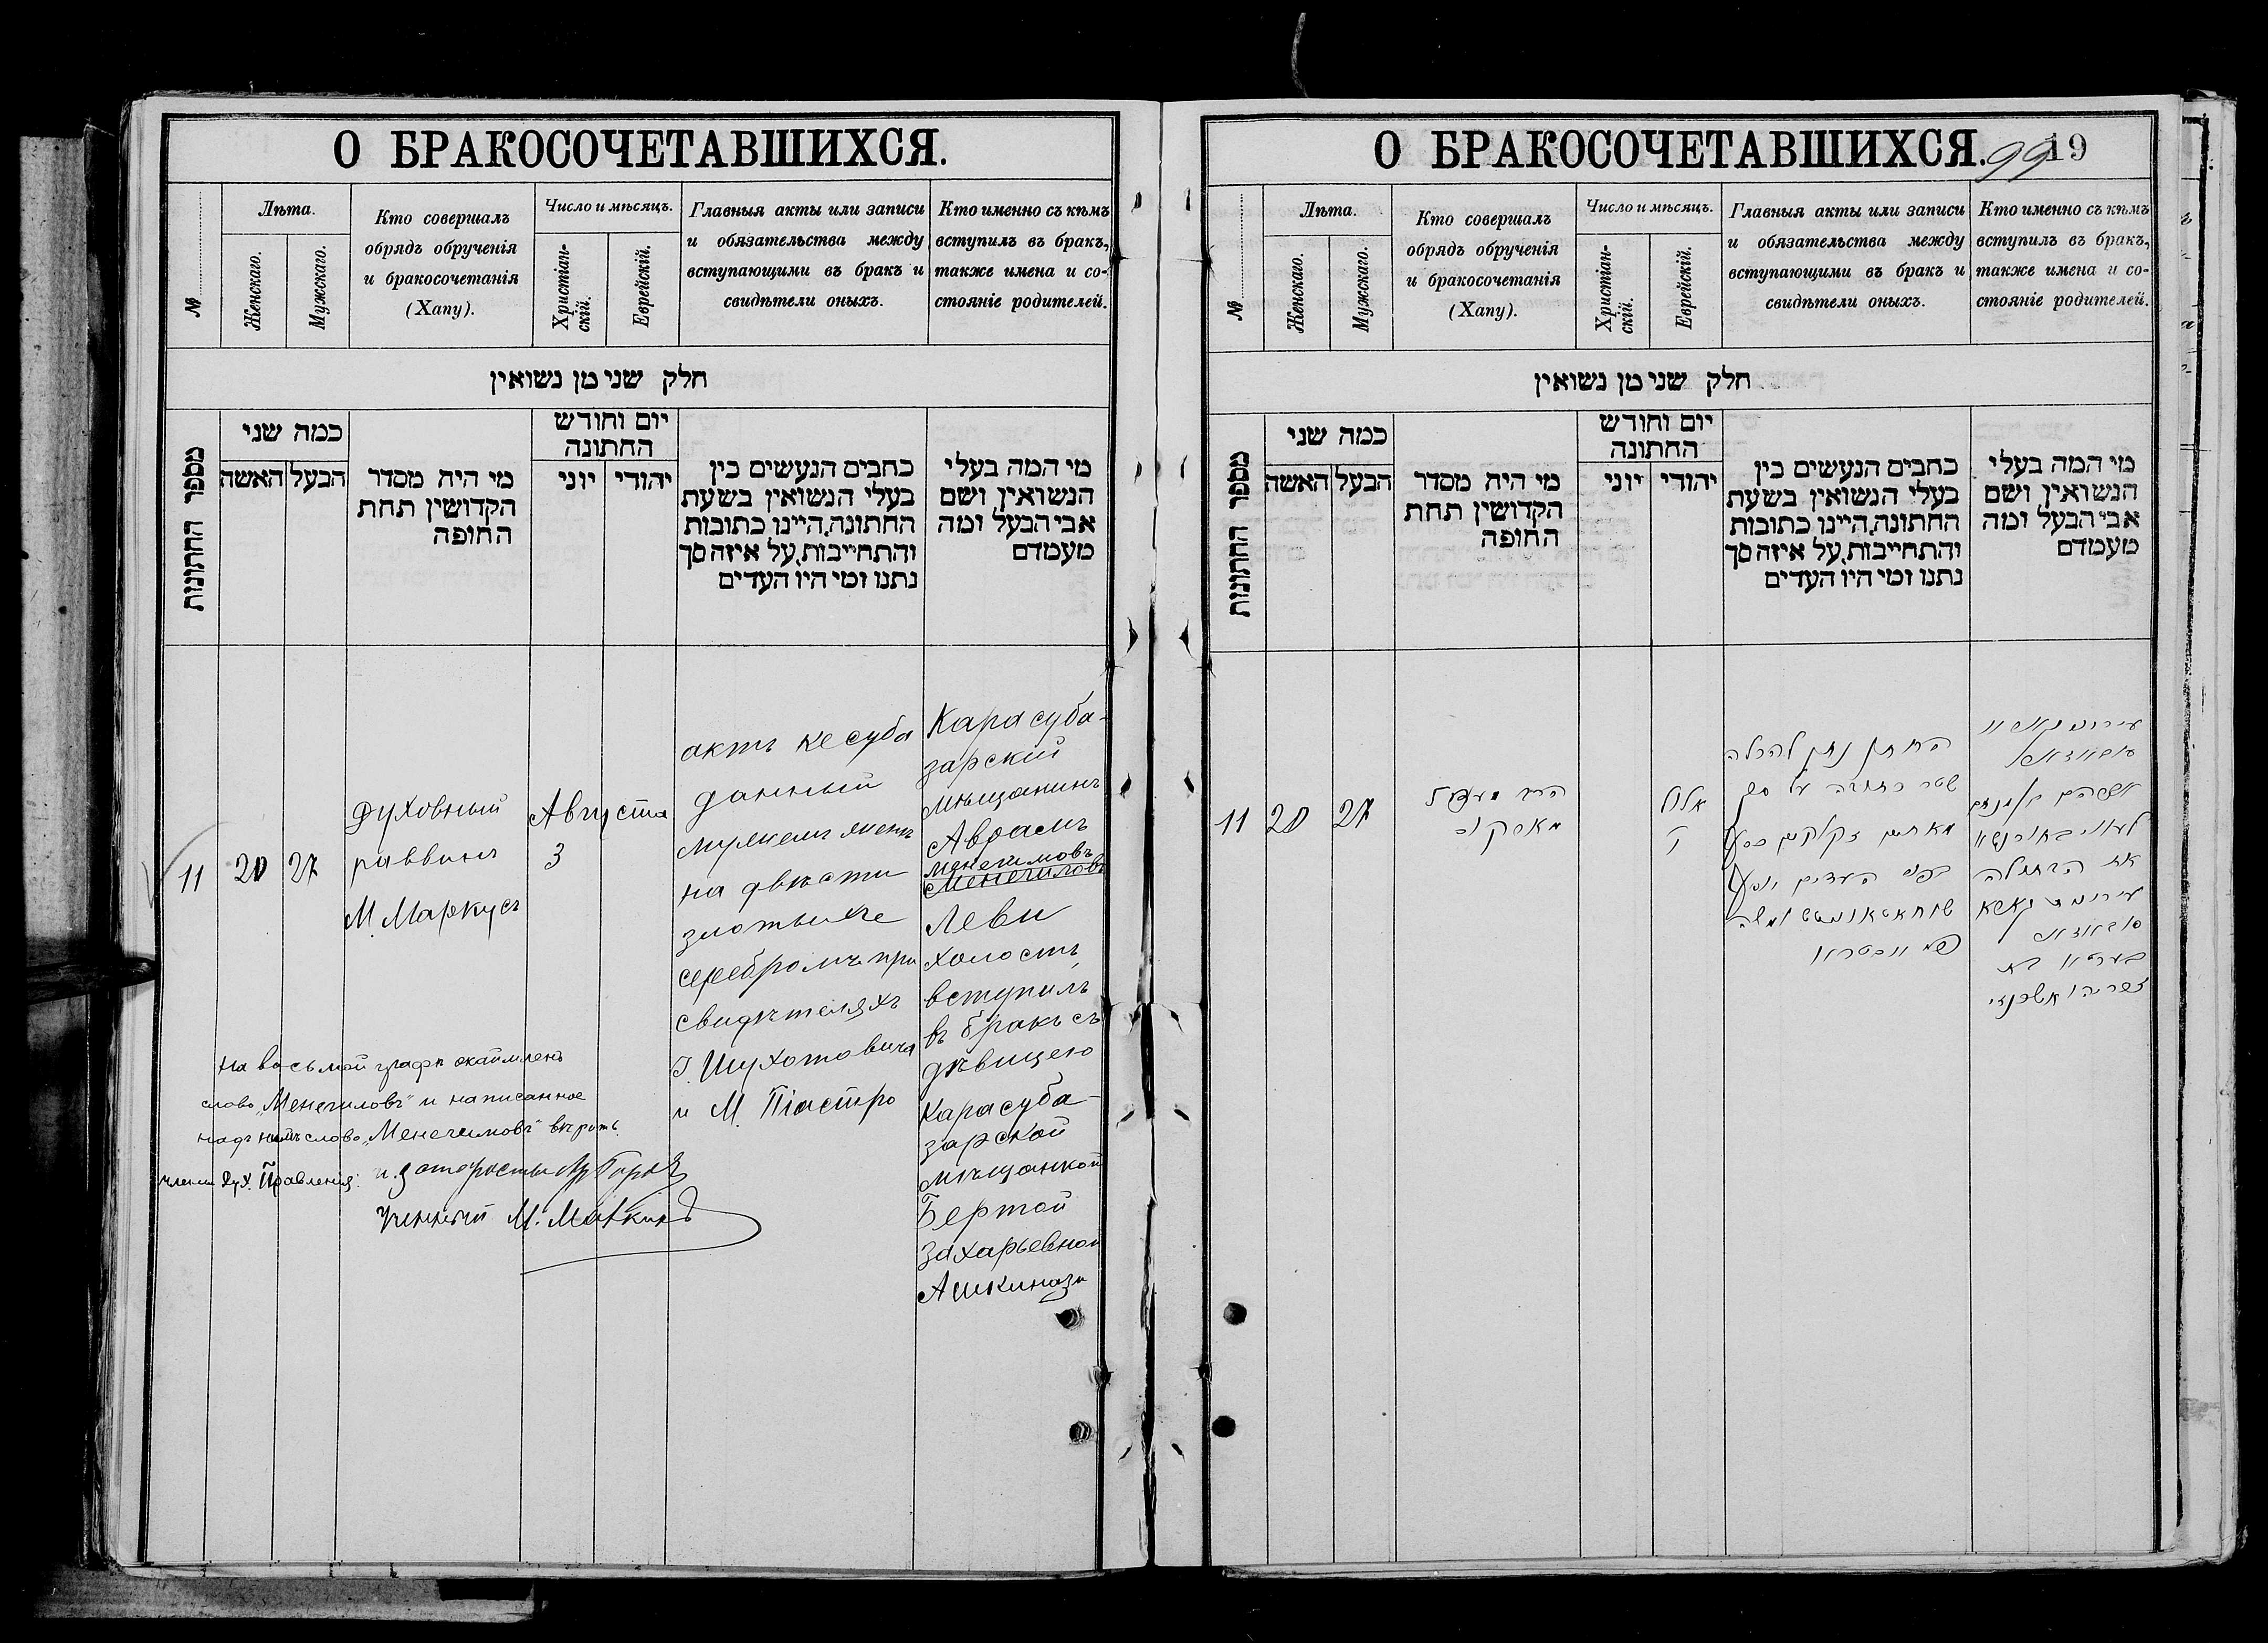 О БРАКОСОЧЕТАВШИХСЯ.
№
Лѣта.
Женскаго.
Мужскаго.
Кто совершалъ
обрядъ обрученія
и бракосочетанія
(Хапу).
Число и мѣсяцъ.
Христіан-
скій.
Еврейскій.
Главныя акты или записи
и обязательства между
вступающими въ бракъ и
свидѣтели оныхъ.
Кто именно съ кѣмъ
вступилъ въ бракъ,
также имена и со-
стояніе родителей.
חלק שני מן נשואין
מספר החתונות
כמה שני
האשה
הבעל
מי היה מסדר
הקדושין תחת
החופה
יום וחודש
החתונה
יוני
יהודי
כחבים הנעשים בין
בעלי הנשואין בשעת
החתונה, היינו כתובות
והתחייבות, על איזה סך
נתנו ומי היו העדים
מי המה בעלי
הנשואין ושם
אבי הבעל ומה
מעמדם
11
20
27
Духовный
раввинъ
М. Маркусъ
Августа
3
актъ кесуба
данный
мужемъ женѣ
на двѣсти
злотыхъ
серебромъ при
свидѣтеляхъ
І. Шухатовича
и М. Піастро
Карасуба-
зарскій
мѣщанинъ
Авраамъ
Менехимовъ
Менехиловъ
Леви
холостъ,
вступилъ
въ бракъ съ
дѣвицею
Карасуба-
зарской
мѣщанкой
Бертой
Захарьевной
Ашкинази
На восьмой графѣ окаймленъ
слово „Менехиловъ" и написанное
надъ нимъ слово „Менехимовъ" вѣрить.
члены Дух. Правленія:
Ученный М. Маткинъ
О БРАКОСОЧЕТАВШИХСЯ.
99
19
№
Лѣта.
Женскаго.
Мужскаго.
Кто совершалъ
обрядъ обрученія
и бракосочетанія
(Хапу).
Число и мѣсяцъ.
Христіан-
скій.
Еврейскій.
Главныя акты или записи
и обязательства между
вступающими въ бракъ и
свидѣтели оныхъ.
Кто именно съ кѣмъ
вступилъ въ бракъ,
также имена и со-
стояніе родителей.
חלק שני מן נשואין
מספר החתונות
כמה שני
האשה
הבעל
מי היה מסדר
הקדושין תחת
החופה
יום וחודש
החתונה
יוני
יהודי
כחבים הנעשים בין
בעלי הנשואין בשעת
החתונה, היינו כתובות
והתחייבות, על איזה סך
נתנו ומי היו העדים
מי המה בעלי
הנשואין ושם
אבי הבעל ומה
מעמדם
11
20
27
הרב
מארקוס
אלול
החתן נתן להכלה
שטר כתובה על סך
מאתים זקוקים כסף
בפני העדים יוסף
ומשה
אברהם בן מנחם
לעווי
את הבתולה
בערטא בת
זכריה אשכנזי